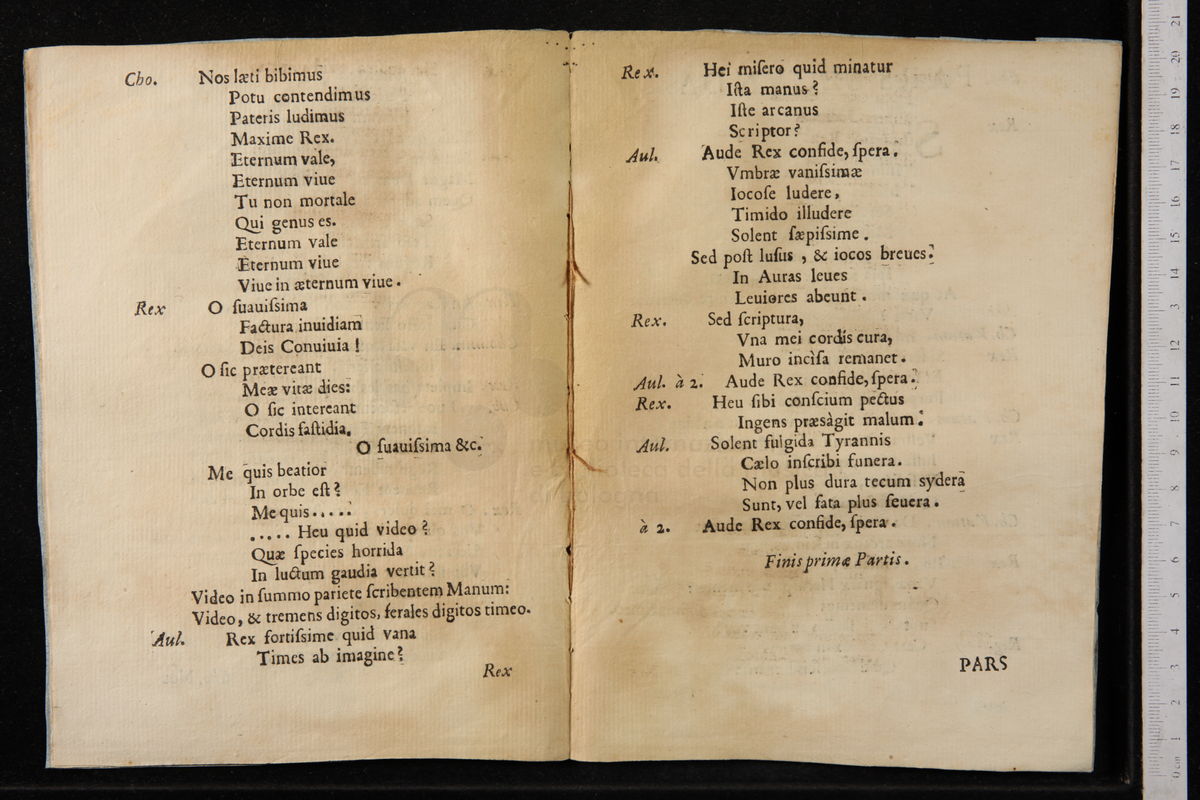 Cho. Nos læti bibimus
Potu contendimus
Pateris ludimus
Maxime Rex.
Eternum vale,
Eternum viue
Tu non mortale
Qui genus es.
Eternum vale
Eternum viue
Viue in æternum viue.
Rex O ſuauiſsima
Factura inuidiam
Deis Conuiuia!
O ſic prætereant
Meæ vitæ dies:
O ſic intereant
Cordis faſtidia.
O ſuauiſsima &c.
Me quis beatior
In orbe eſt?
Me quis.....
..... Heu quid video?
Quæ ſpecies horrida
In luctum gaudia vertit?
Video in ſummo pariete ſcribentem Manum:
Video, & tremens digitos, ferales digitos timeo.
Aul. Rex fortiſsime quid vana
Times ab imagine?
Rex
Rex. Hei miſero quid minatur
Iſta manus?
Iſte arcanus
Scriptor?
Aul. Aude Rex confide, ſpera.
Vmbræ vaniſsimæ
Iocoſe ludere,
Timido illudere
Solent ſæpiſsime.
Sed poſt luſus, & iocos breues:
In Auras leues
Leuiores abeunt.
Rex. Sed ſcriptura,
Vna mei cordis cura,
Muro inciſa remanet.
Aul. à 2. Aude Rex confide, ſpera.
Rex. Heu ſibi conſcium pectus
Ingens præsàgit malum.
Aul. Solent fulgida Tyrannis
Cælo inſcribi funera.
Non plus dura tecum sydera
Sunt, vel fata plus ſeuera.
à 2. Aude Rex confide, ſpera.
Finis primæ Partis.
PARS
17
16
15
14
13
12
11
10
9
8
7
6
5
4
3
2
1
0 cm
18
19
20
21